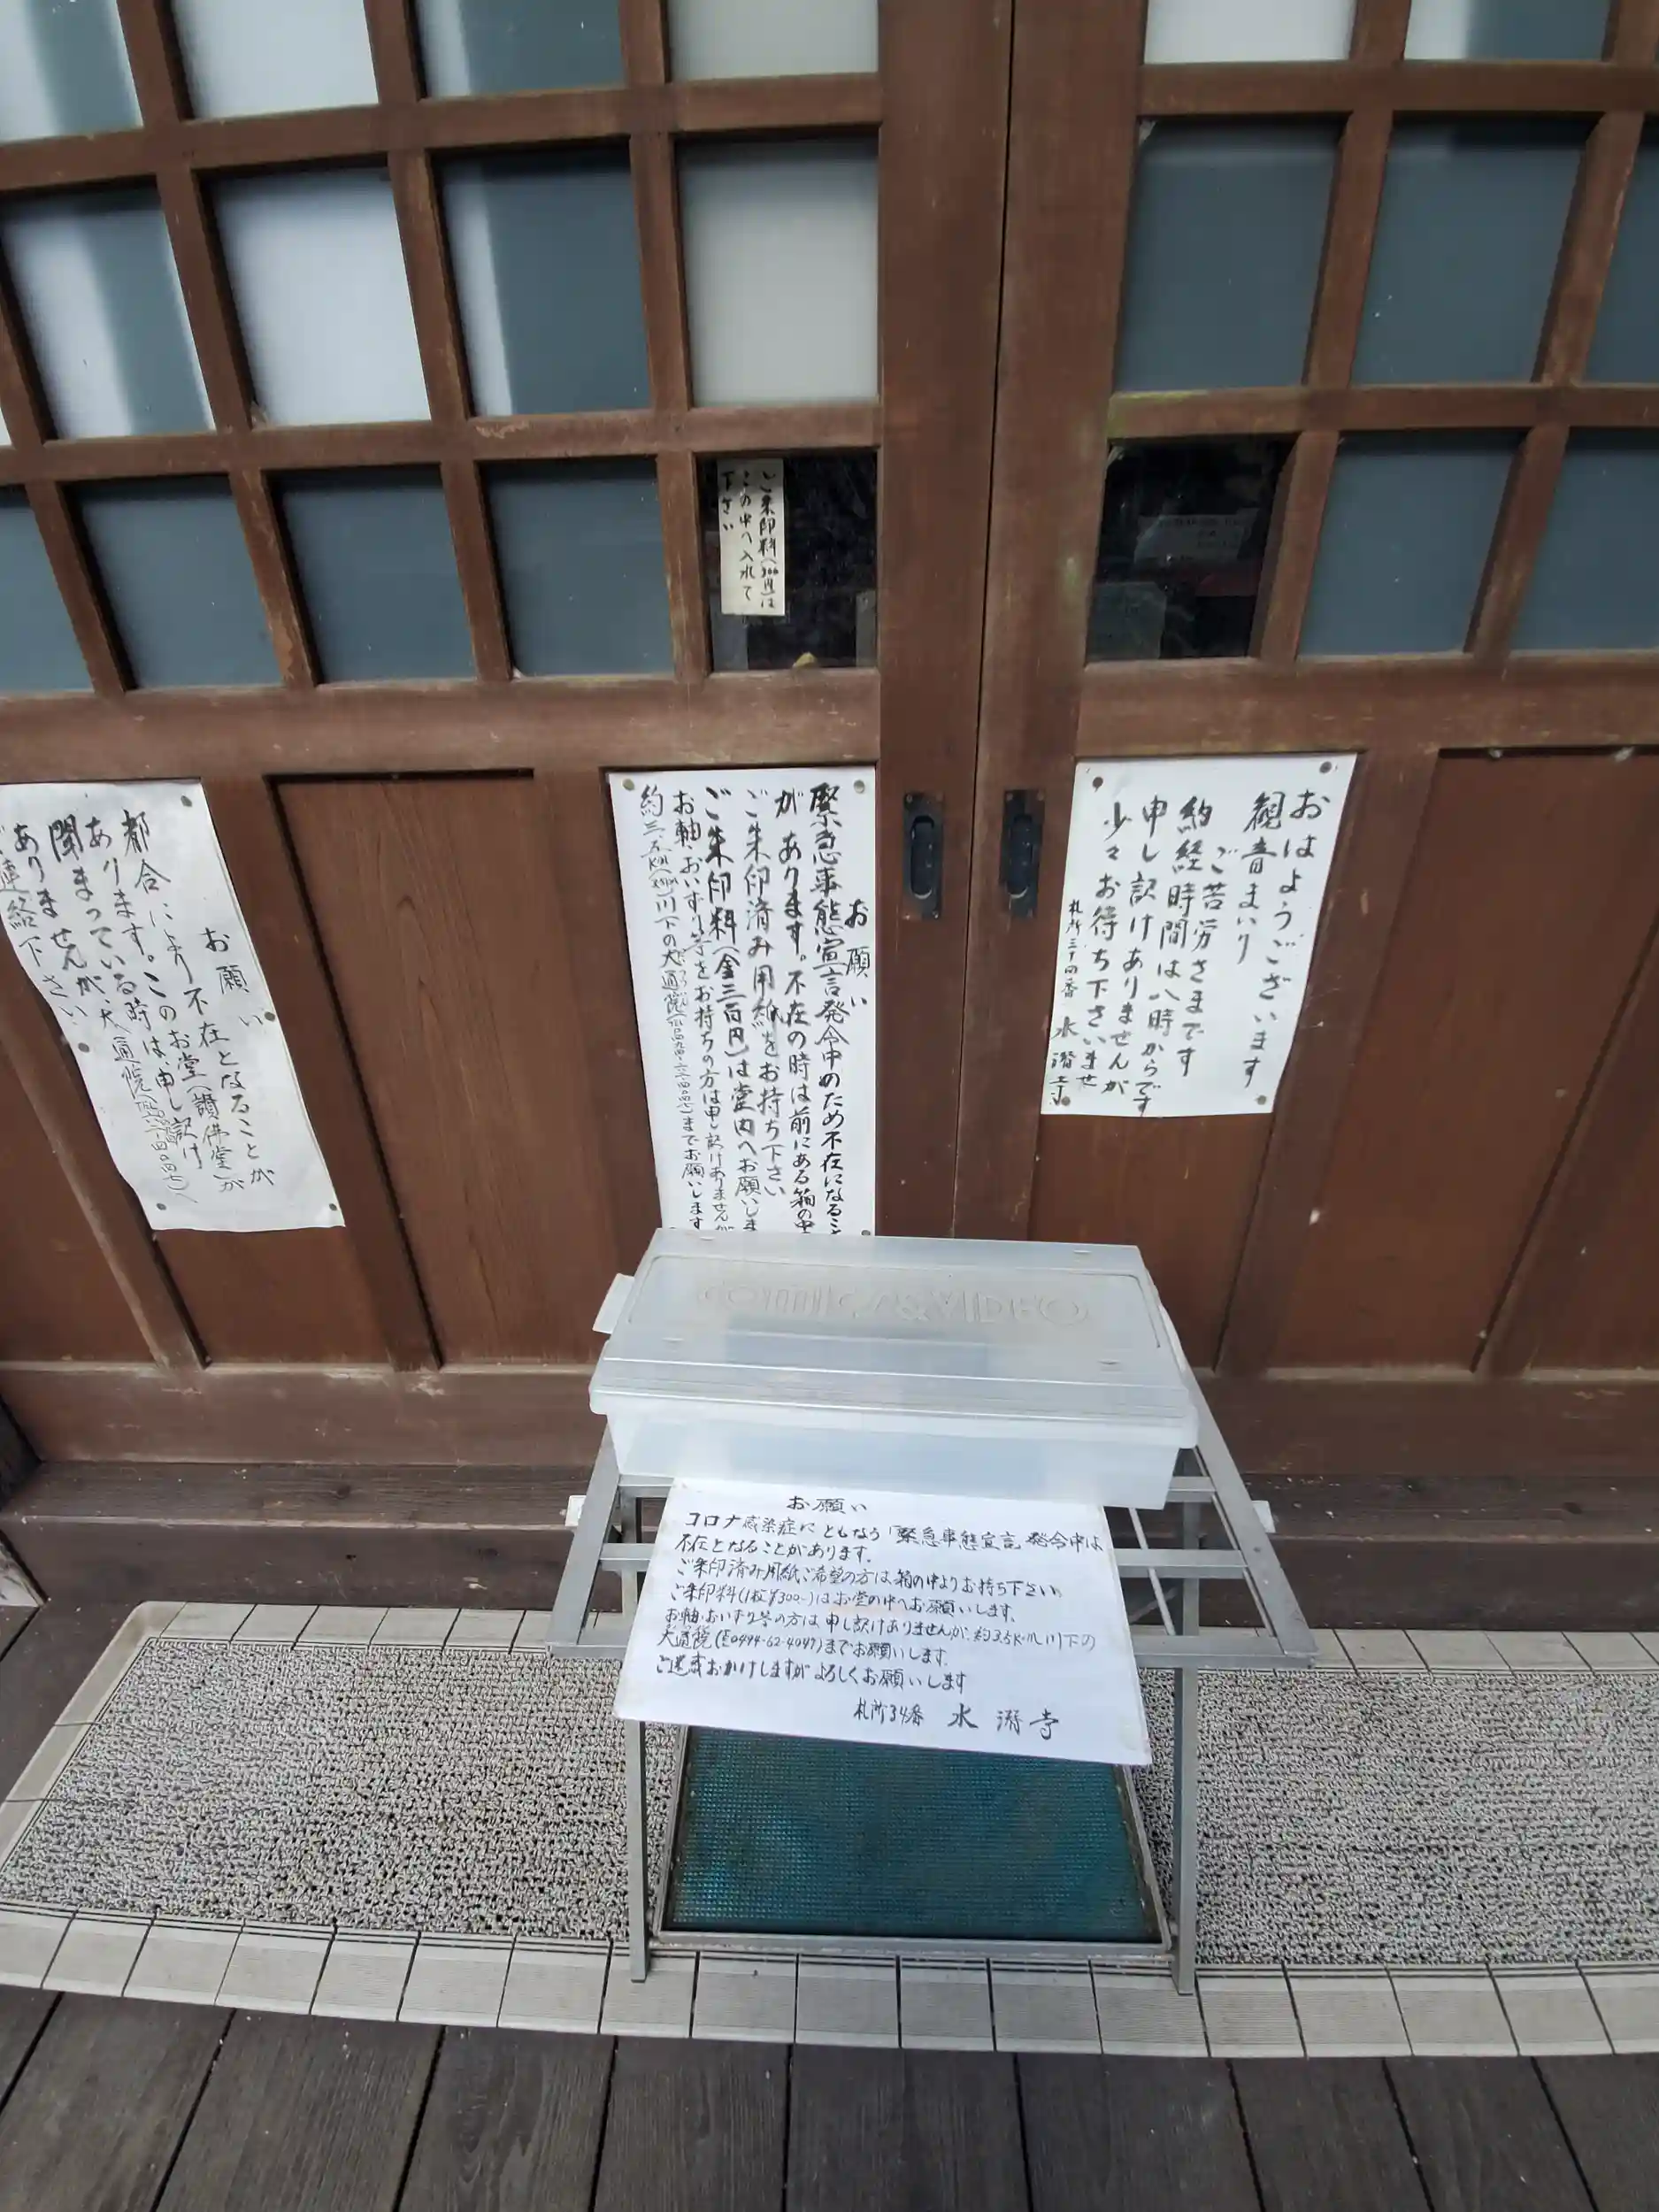 ご朱印料(300円)は
この中へ入れて
下さい
おはようございます
観音まいり
ご苦労さまです
納経時間は八時からです
申し訳けありませんが
少々お待ち下さいませ
札所三十四番 水潜寺
お願い
緊急事態宣言発令中のため不在になること
があります。不在の時は前にある箱の中
ご朱印済み用紙をお持ち下さい
ご朱印料(金三百円)は堂内へお願いしま
お軸、おいずり等をお持ちの方は申し訳けありませんが
約三.五
川下の大通院
までお願いします
お願い
都合により不在となることが
あります。このお堂(讃佛堂)が
閉まっている時は、申し訳け
ありませんが、大通院
連絡下さい
COMICS&VIDEO
お願い
コロナ感染症にともなう「緊急事態宣言」発令中は
不在となることがあります。
ご朱印済み用紙ご希望の方は箱の中よりお持ち下さい。
ご朱印料(1枚¥300-)はお堂の中へお願いします。
お軸・おいずり等の方は申し訳けありませんが、約3.5K川下の
大通院(☎0494-62-4047)までお願いします。
ご迷惑おかけしますがよろしくお願いします
札所34番 水潜寺